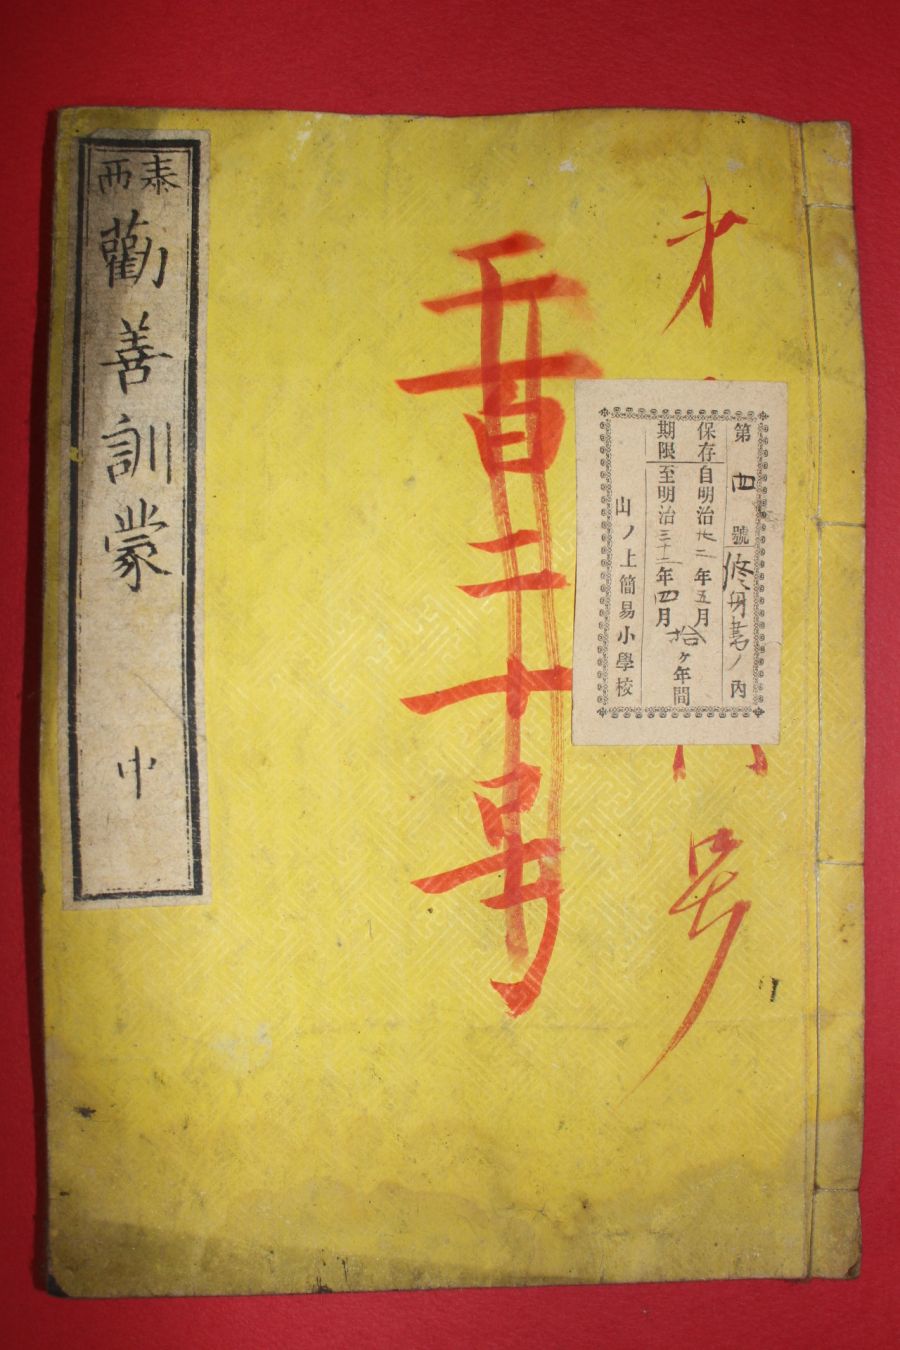 第
号
第四號修身書ノ内
保存自明治廿二年五月
期限至明治三十二年四月
拾ヶ年間
山ノ上簡易小學校
千百二十号
泰西
勸善訓蒙 中